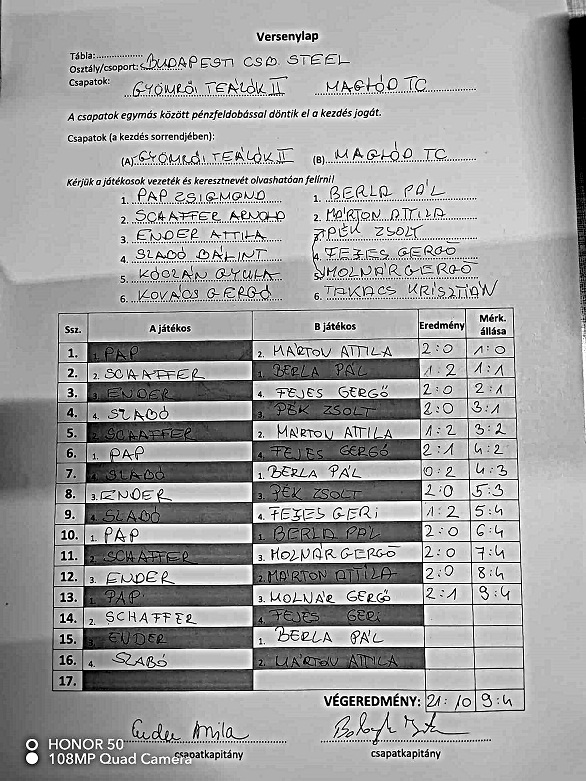 Versenylap
Tábla:
Osztály/csoport: BUDAPESTI CSB STEEL
Csapatok: GYÖMRŐI TEÁLÓK II MAGLÓD TC
A csapatok egymás között pénzfeldobással döntik el a kezdés jogát.
Csapatok (a kezdés sorrendjében):
(A) GYÖMRŐI TEÁLÓK II (B) MAGLÓD TC
Kérjük a játékosok vezeték és keresztnevét olvashatóan felírni!
1. PAP ZSIGMOND 1. BERLA PÁL
2. SCHAFFER ARNOLD 2. MÁRTON ATTILA
3. ENDER ATTILA 3. PÉK ZSOLT
4. SZABÓ BÁLINT 4. FEJES GERGŐ
5. GYULA 5. MOLNÁR GERGŐ
6. KOVÁCS GERGŐ 6. TAKÁCS KRISZTIÁN
Ssz. A játékos B játékos Eredmény Mérk. állása
1. 1. PAP 2. MÁRTON ATTILA 2:0 1:0
2. 2. SCHAFFER 1. BERLA PÁL 1:2 1:1
3. 3. ENDER 4. FEJES GERGŐ 2:0 2:1
4. 4. SZABÓ 3. PÉK ZSOLT 2:0 3:1
5. 2. SCHAFFER 2. MÁRTON ATTILA 1:2 3:2
6. 1. PAP 4. FEJES GERGŐ 2:1 4:2
7. 4. SZABÓ 1. BERLA PÁL 0:2 4:3
8. 3. ENDER 3. PÉK ZSOLT 2:0 5:3
9. 4. SZABÓ 4. FEJES GERI 1:2 5:4
10. 1. PAP 1. BERLA PÁL 2:0 6:4
11. 2. SCHAFFER 3. MOLNÁR GERGŐ 2:0 7:4
12. 3. ENDER 2. MÁRTON ATTILA 2:0 8:4
13. 1. PAP 3. MOLNÁR GERGŐ 2:1 9:4
14. 2. SCHAFFER 4. FEJES GERI
15. 3. ENDER 1. BERLA PÁL
16. 4. SZABÓ 2. MÁRTON ATTILA
17.
VÉGEREDMÉNY: 21:10 9:4
Ender Attila
csapatkapitány csapatkapitány
HONOR 50
108MP Quad Camera